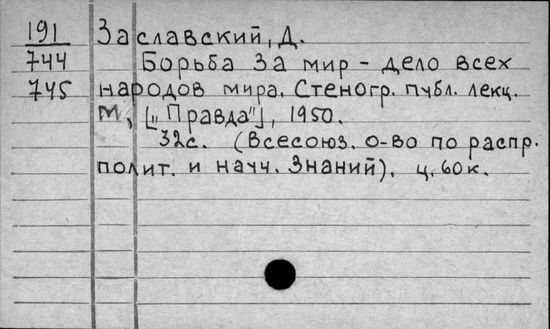 191 Заславский, Д.
744 Борьба за мир - дело всех
745 народов мира. Стеногр. публ. лекц.
М, [„Правда"], 1950.
32с. (Всесоюз. о-во по распр.
полит. и научн. Знаний). ц. 60к.